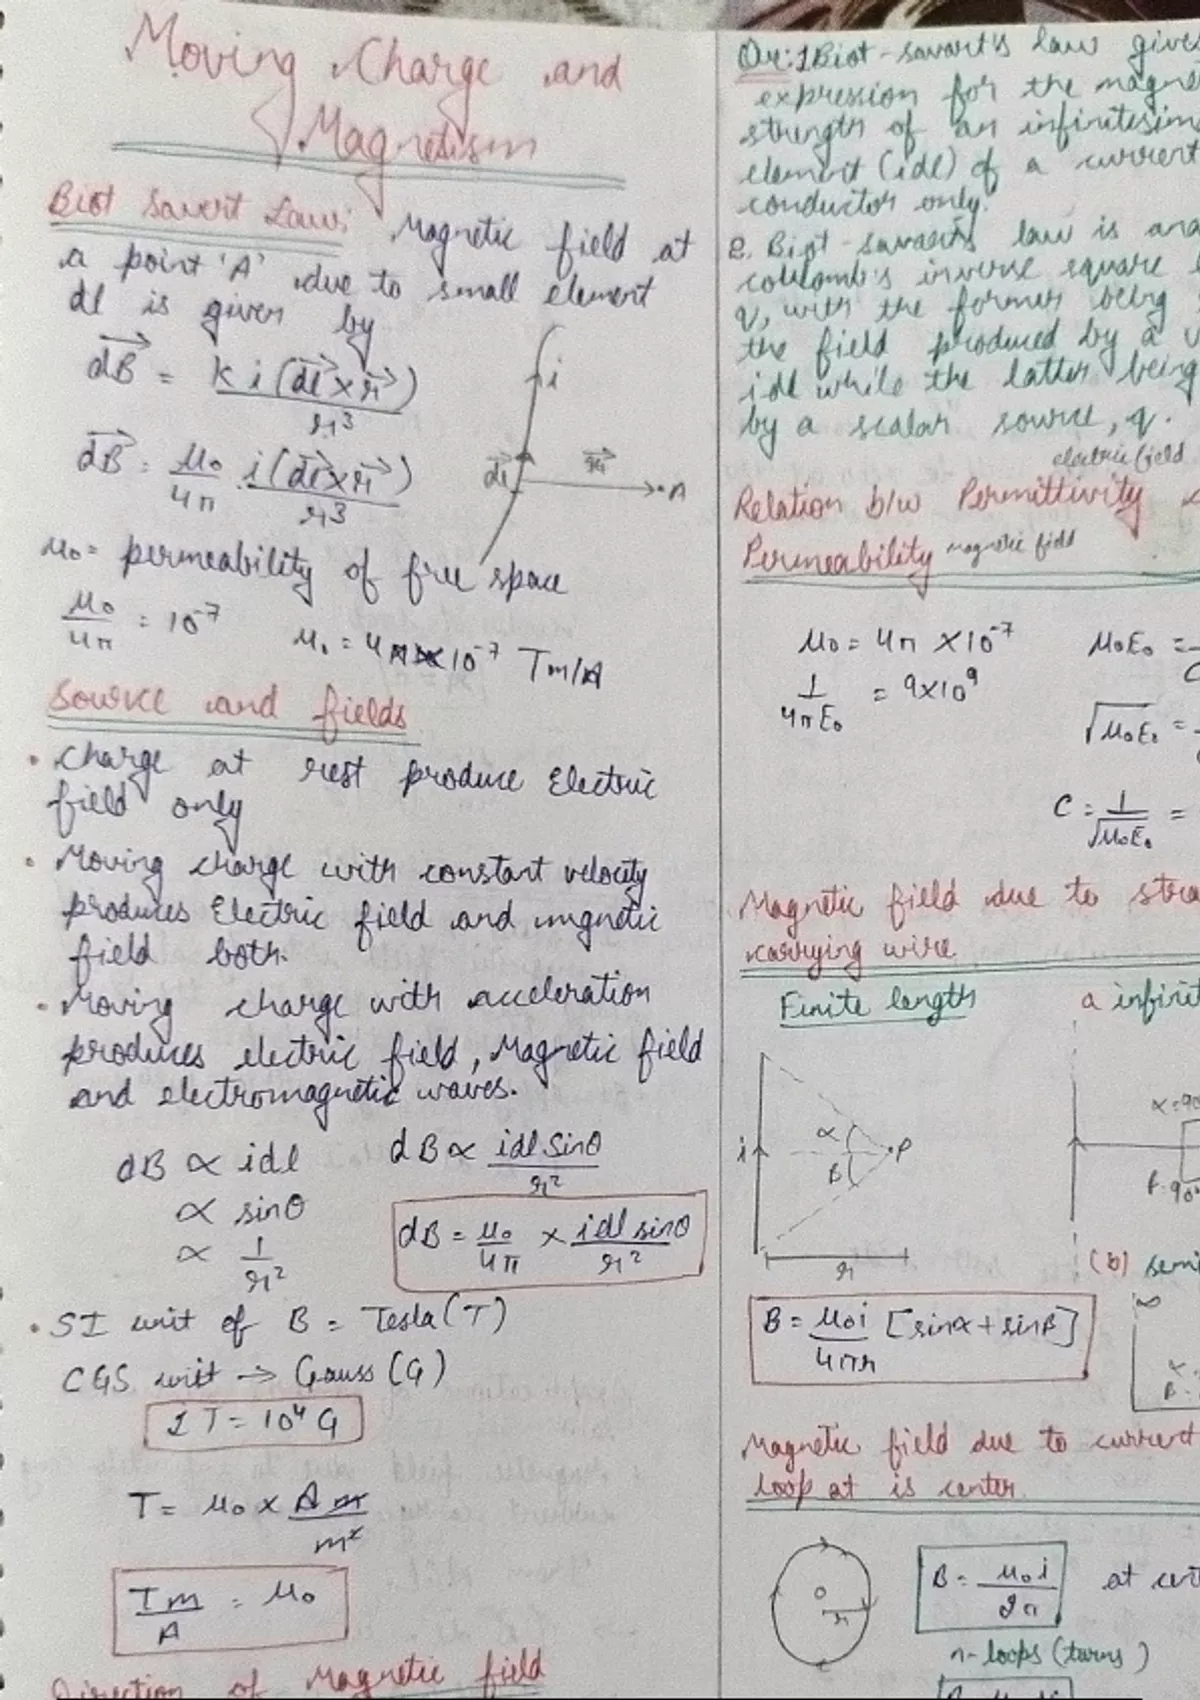 Moving Charge and
Magnetism
Biot Savert Law: Magnetic field at
a point 'A' due to small element
dl is given by
dB = k i (dl × r)
r3
dB = μ0 i (dl × r)
4π r3
i
dl r A
μ0 = permeability of free space
μ0 = 10-7 μ0 = 4π × 10-7 Tm/A
4π
Source and fields
• Charge at rest produce Electric
field only
• Moving charge with constant velocity
produces Electric field and magnetic
field both.
• Moving charge with acceleration
produces electric field, Magnetic field
and electromagnetic waves.
dB ∝ idl dB ∝ idl sinθ
r2
∝ sinθ
∝ 1
r2
dB = μ0 × idl sinθ
4π r2
• SI unit of B = Tesla (T)
CGS unit → Gauss (G)
1 T = 10^4 G
T = μ0 × A m
m2
Tm = μ0
A
Direction of Magnetic field
1 Biot-savart's law give
expression for the magne
strength of an infinitesim
element (idl) of a current
conductor only.
2. Biot-savart's law is ana
coulomb's inverse square
q, with the former being
the field produced by a v
idl while the latter being
by a scalar source, q.
electric field
Relation b/w Permittivity
Permeability magnetic field
μ0 = 4π × 10-7 μ0E0 =
1 = 9×10^9
4πE0
√μ0E0 =
C = 1 =
√μ0E0
Magnetic field due to stra
carrying wire
Finite length a infinit
i α P
β
r
α=90
β=90°
(b) semi
∞
B = μ0i [sinα + sinβ]
4πr
Magnetic field due to current
loop at is center
O
r
B = μ0 i at
2r
n-loops (turns)